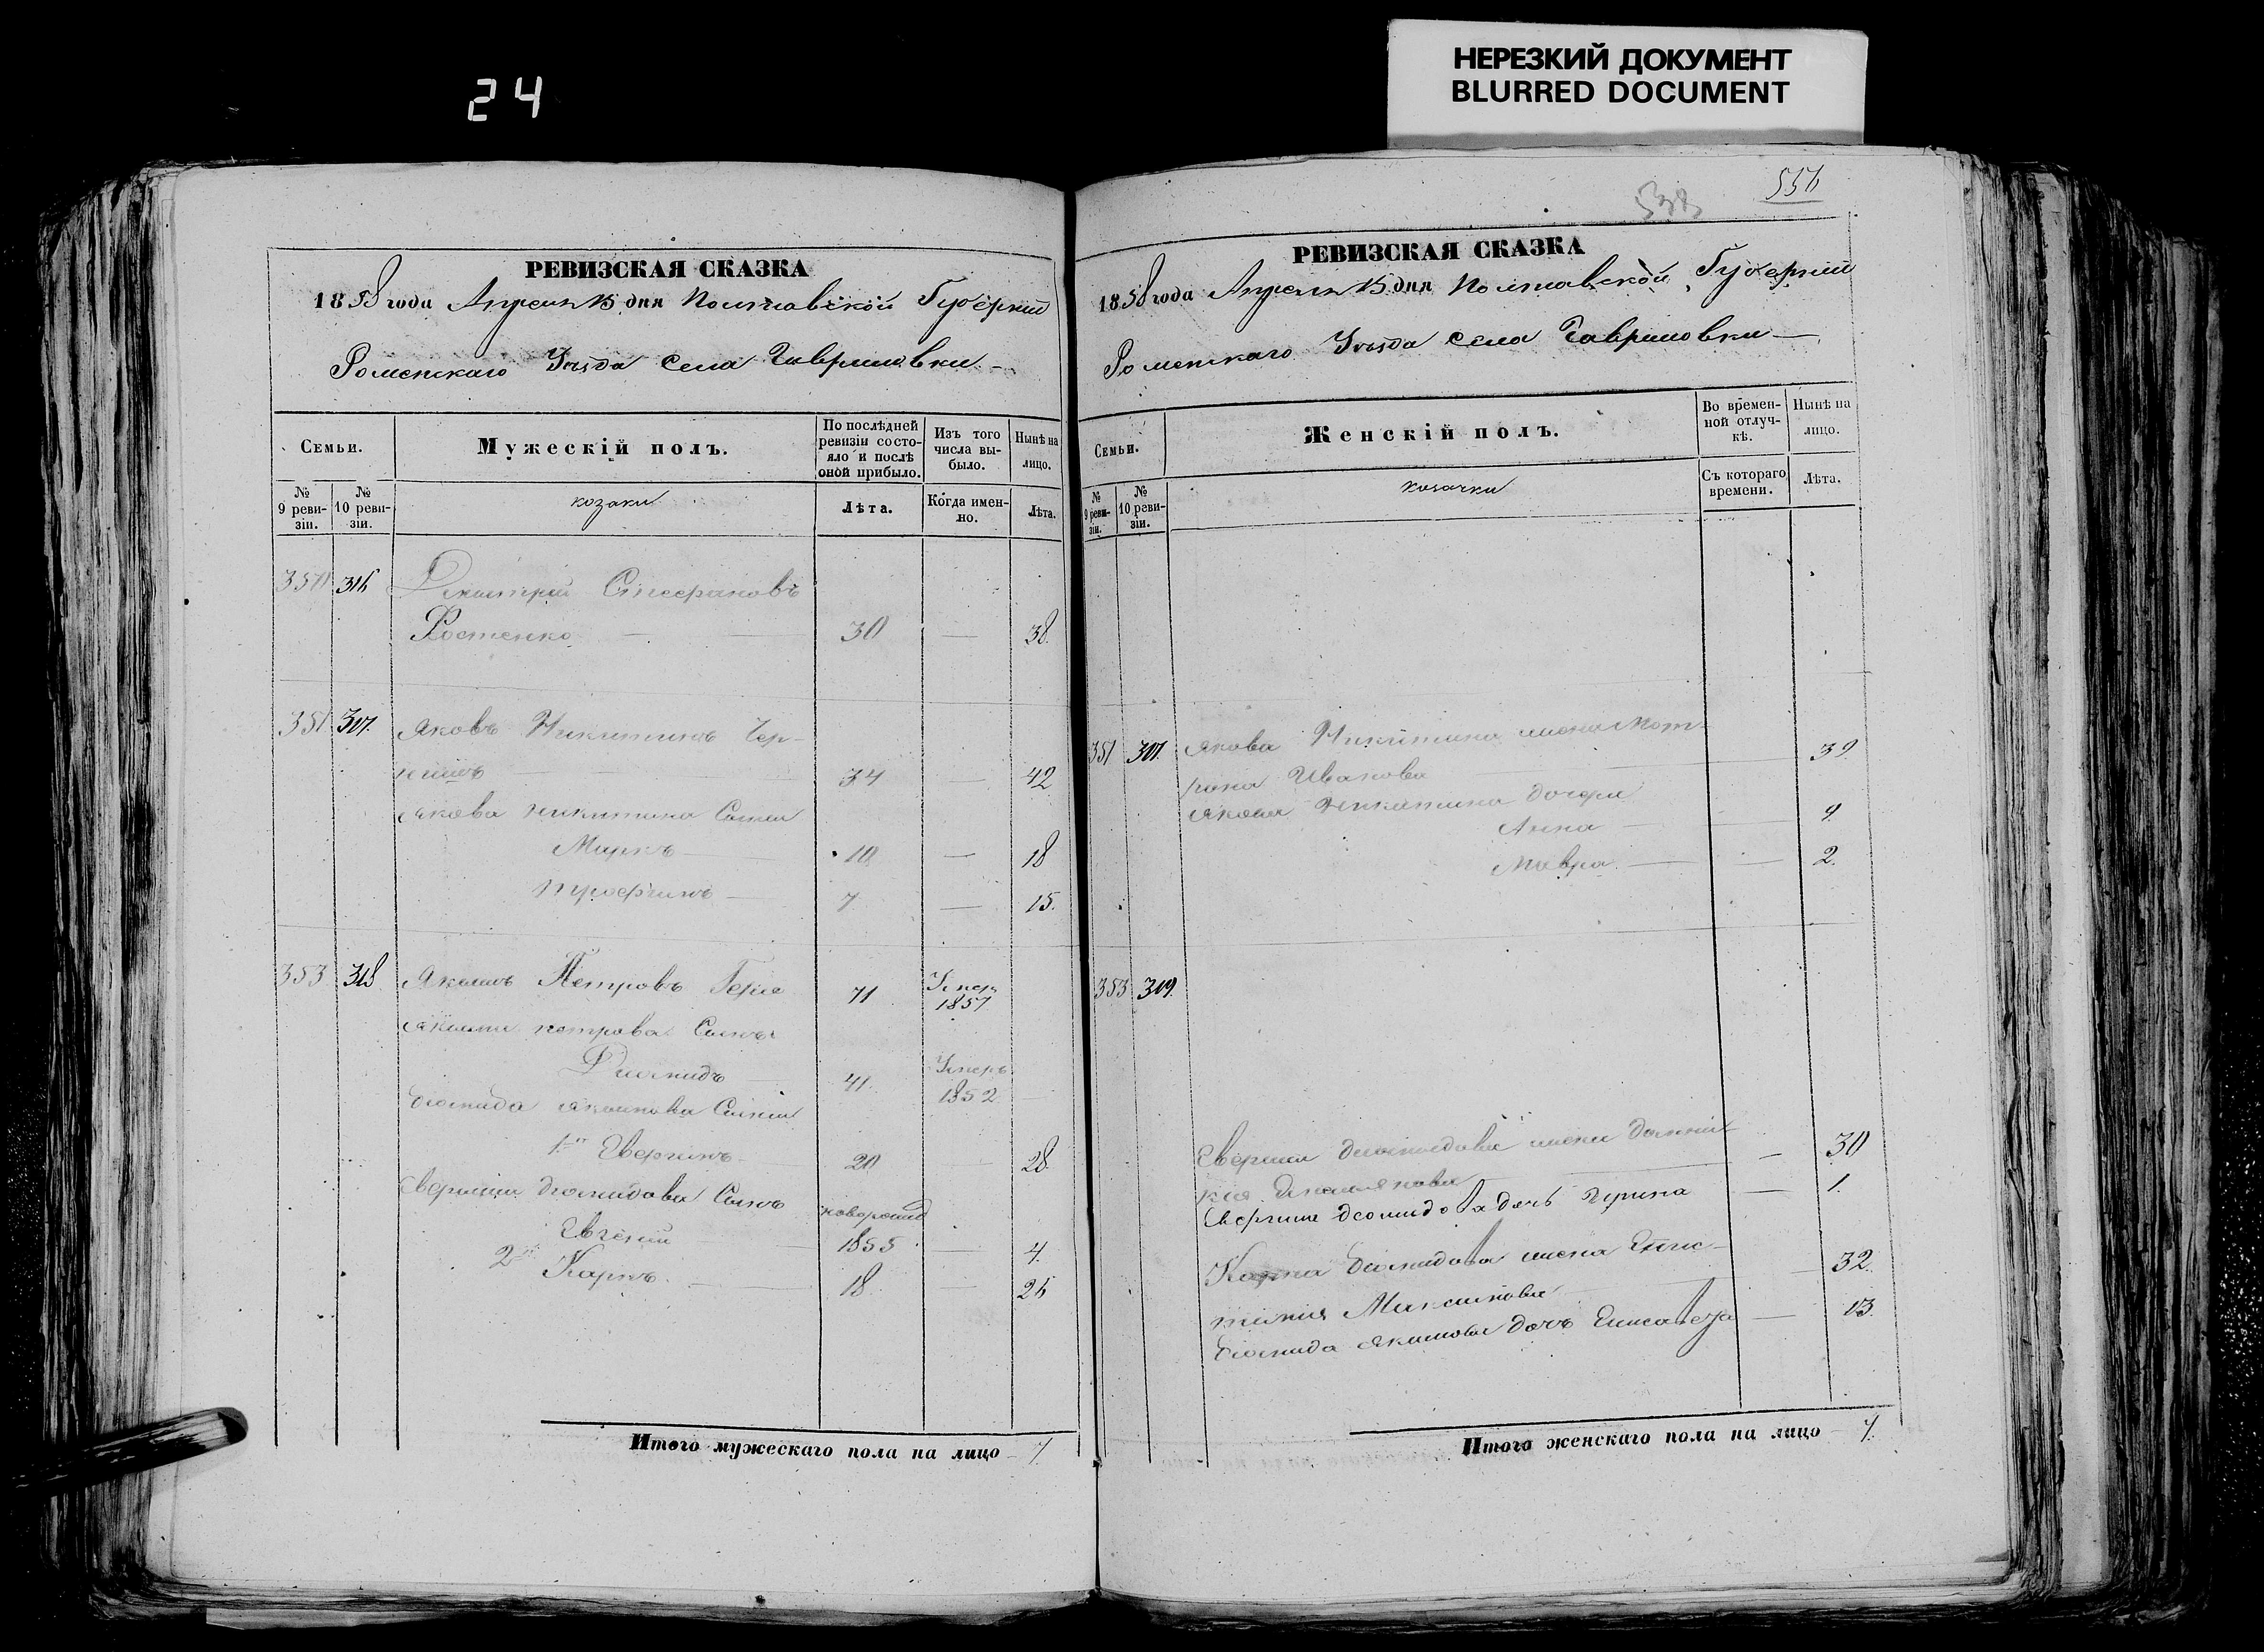 НЕРЕЗКИЙ ДОКУМЕНТ
BLURRED DOCUMENT
24
556
РЕВИЗСКАЯ СКАЗКА
1858 года Апреля 15 дня Полтавской Губернии
Роменскаго Уѣзда села Гавриловки
Семьи.
Мужескій полъ.
По послѣдней ревизіи состояло и послѣ оной прибыло.
Изъ того числа выбыло.
Нынѣ на лицо.
№ 9 ревизіи.
№ 10 ревизіи.
козаки
Лѣта.
Когда именно.
Лѣта.
350 316 Дмитрій Стефановъ
Костенко 30 — 38.
351 317. Яковъ Никитинъ Чер-
34 — 42
Якова Никитина Сыны
Маркъ 10 — 18
Трофимъ 7 — 15.
353 318 Якимъ Петровъ 71 Умеръ 1857
Якима Петрова Сынъ
Диомидъ 41. Умеръ 1852
Диомида Якимова Сыны
1й Аверкій 20 28.
Диомидова Сынъ новорожд
Евгений 1855 4.
2й Карпъ 18. 26
Итого мужескаго пола на лицо 7
РЕВИЗСКАЯ СКАЗКА
1858 года Апреля 15 дня Полтавской Губернии
Роменскаго Уѣзда села Гавриловки
Семьи.
Женскій полъ.
Во временной отлучкѣ.
Нынѣ на лицо.
№ 9 ревизіи.
№ 10 ревизіи.
козачки
Съ котораго времени.
Лѣта.
351 317. Якова Никитина жена Мот
рона Иванова 39.
Якова Никитина дочери
Анна 9
Мавра 2.
353 319.
Диомидова жена Домни
кия 30
Диомидова дочь Ирина 1.
Карпа Диомидова жена
Максимова 32.
Диомида Якимова дочь Елисавета 13.
Итого женскаго пола на лицо 7.